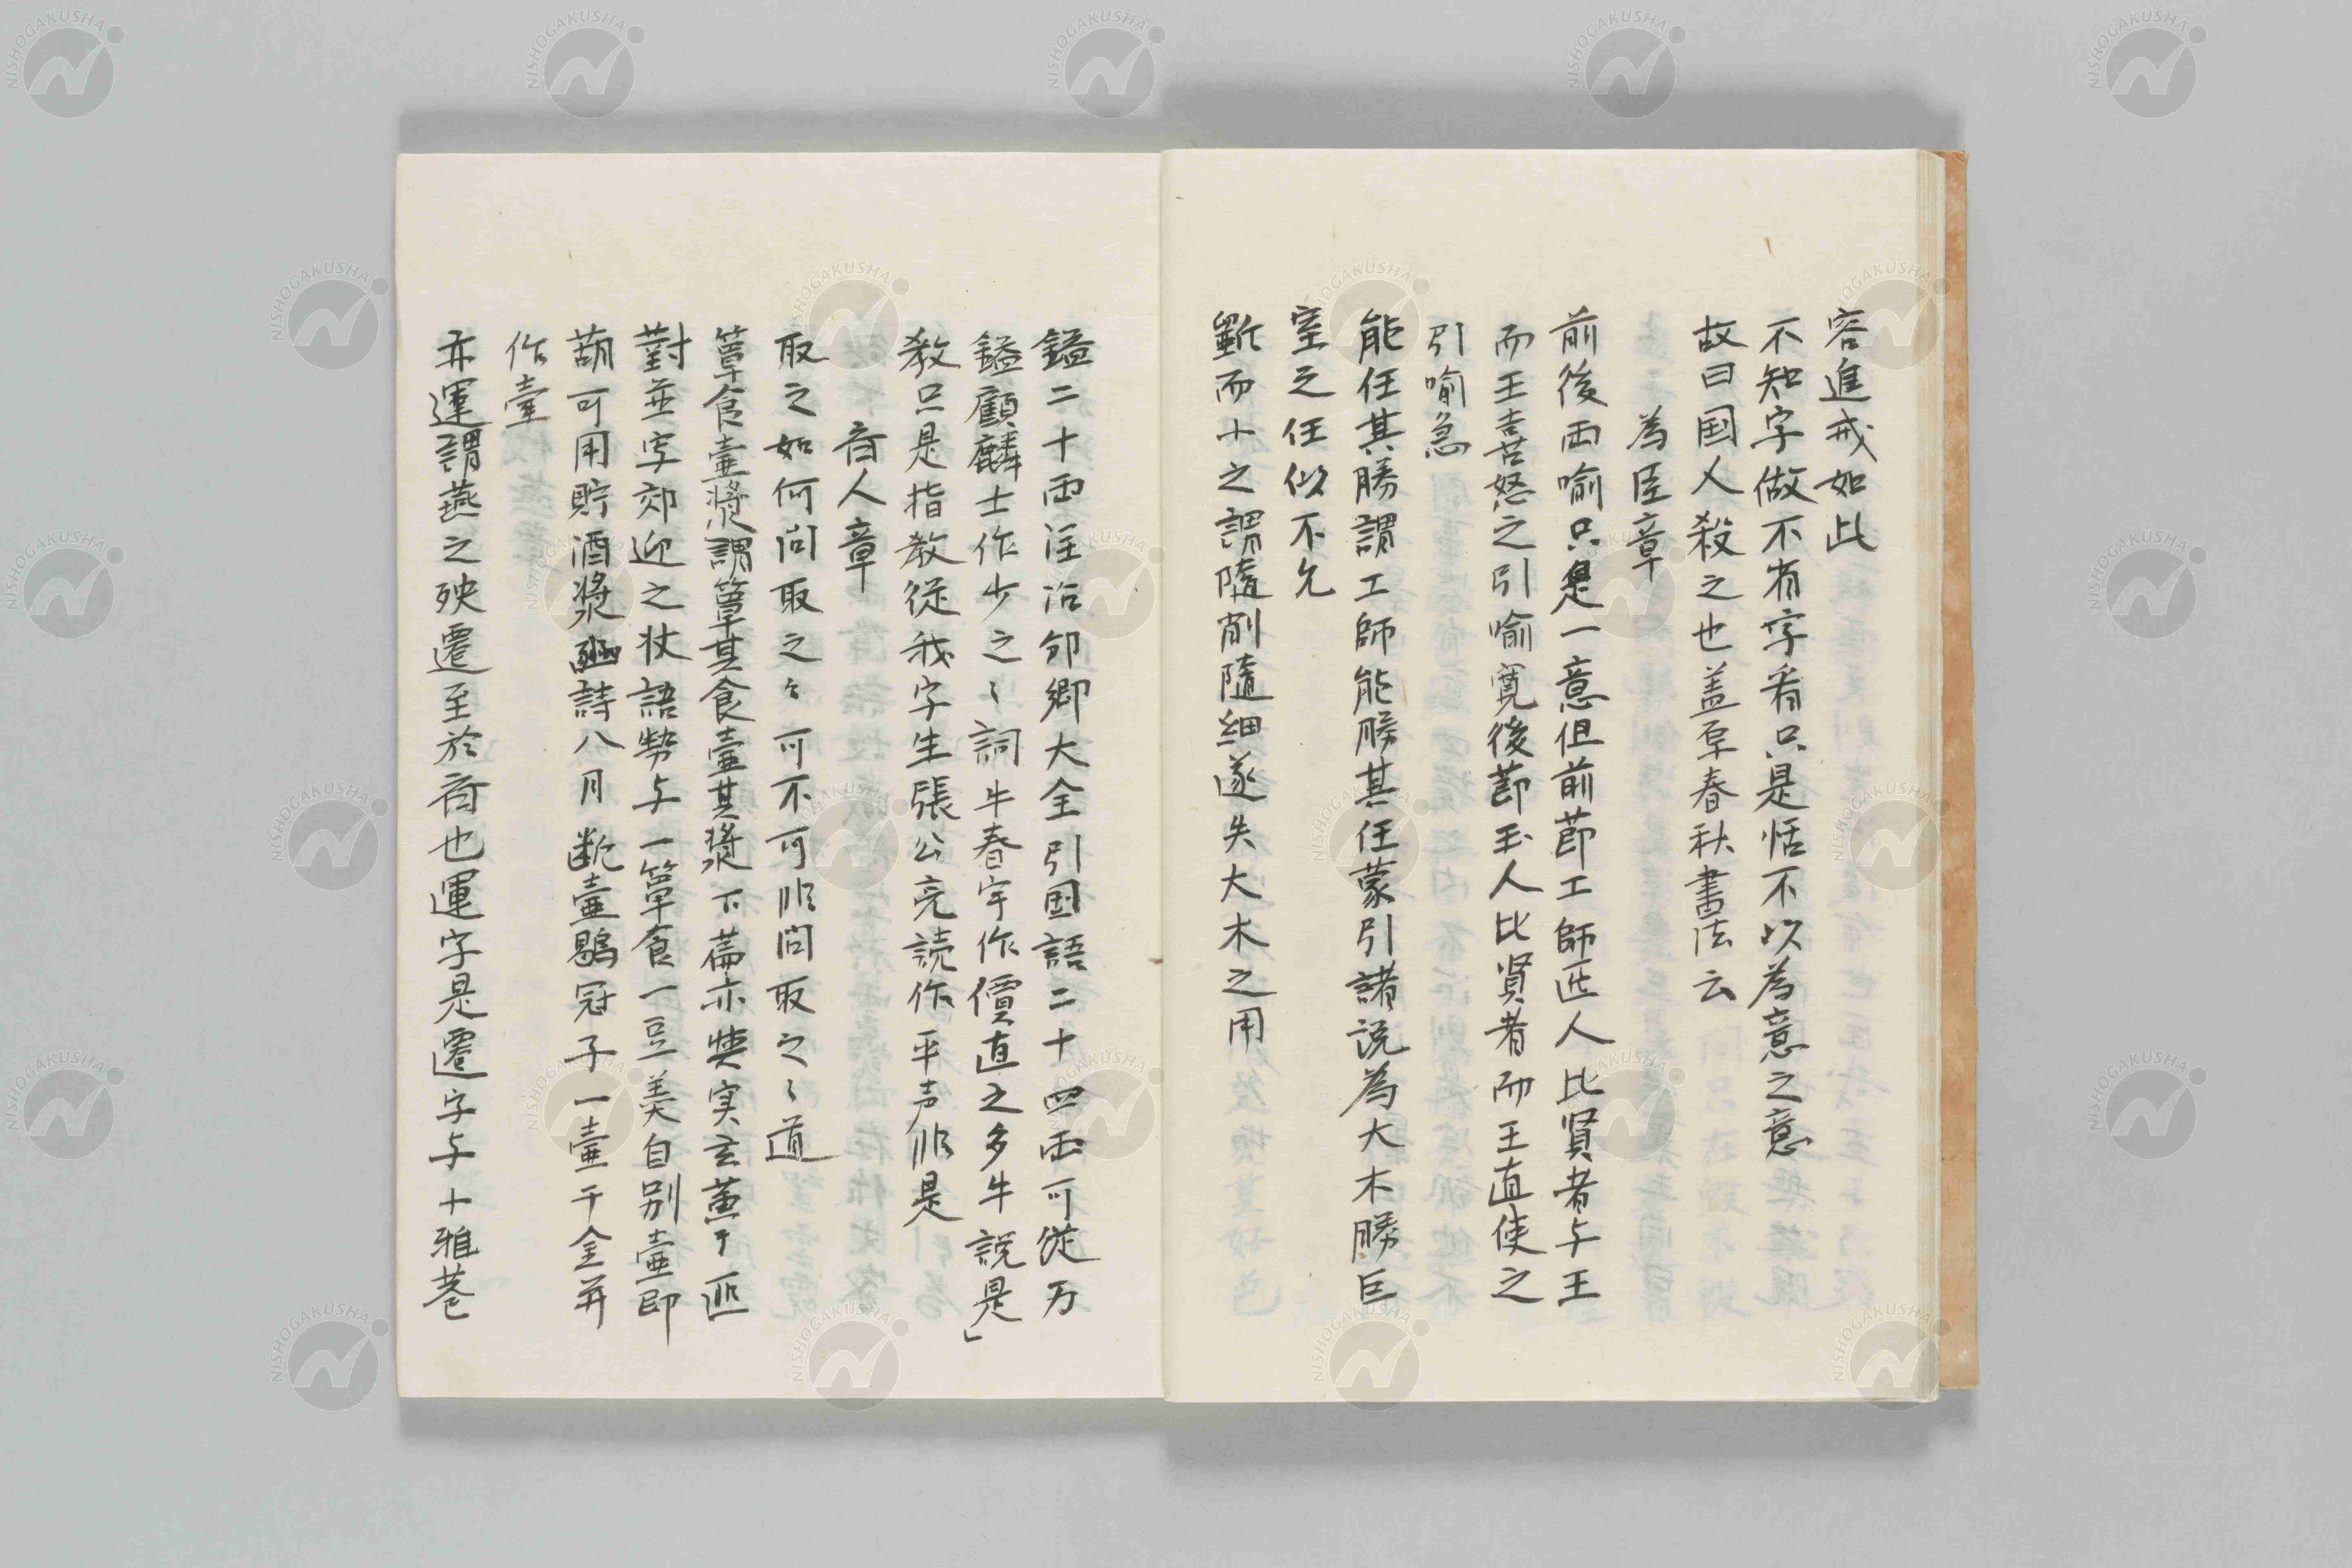 容進戒如此
不知字做不有字看只是恬不以為意之意
故曰国人殺之也盖原春秋書法云
為臣章
前後両喻只是一意但前節工師匠人比賢者与王
而王喜怒之引喻寛後節玉人比賢者而王直使之
引喻急
能任其勝謂工師能勝其任蒙引諸説為大木勝巨
室之任似不允
斲而小之謂隨削隨細遂失大木之用
鎰二十両注治節郷大全引国語二十四両可從万
鎰顧麟士作少之〻詞牛春宇作價直之多牛説是」
教只是指教従我字生張公亮読作平声非是
斉人章
取之如何問取之〻可不可非問取之〻道
簞食壷漿謂簞其食壷其漿下萹亦
對並字郊迎之状語勢与一簞食一豆羮自別壷即
葫可用貯酒漿豳詩八月断壷鶡冠子一壷千金并
作壷
亦運謂燕之殃遷至於斉也運字是遷字与小雅巷